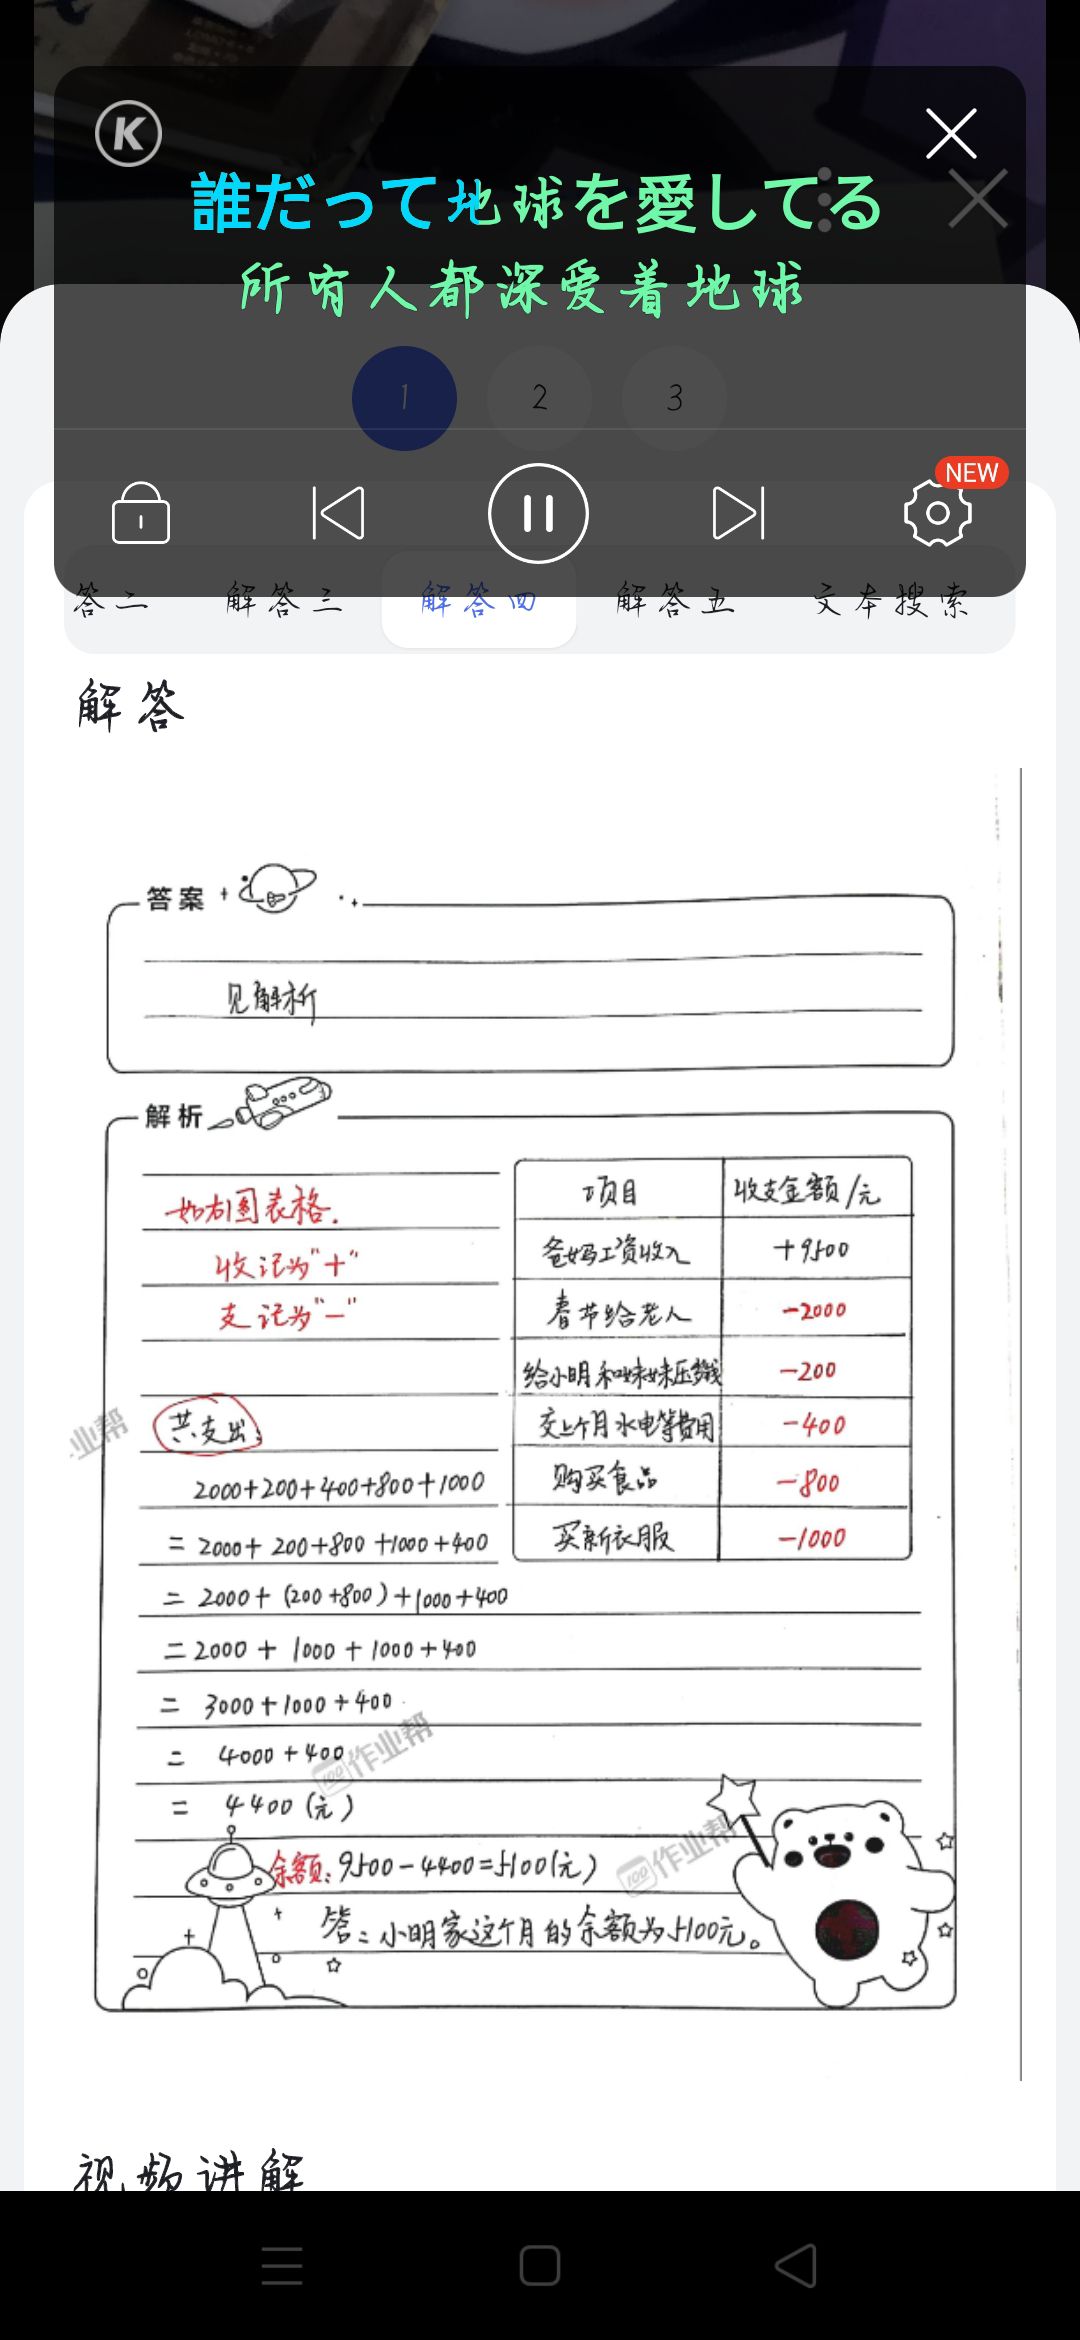 K
誰だって地球を愛してる
所有人都深爱着地球
1 2 3
NEW
答二 解答三 解答四 解答五 文本搜索
解答
答案
见解析
解析
如右图表格.
收记为"+"
支记为"—"
项目 收支金额/元
爸妈工资收入 +9500
春节给老人 -2000
给小明和妹妹压岁钱 -200
交上个月水电等费用 -400
购买食品 -800
买新衣服 -1000
共支出:
2000+200+400+800+1000
= 2000+200+800+1000+400
= 2000+(200+800)+1000+400
= 2000+1000+1000+400
= 3000+1000+400
= 4000+400
= 4400(元)
余额: 9500-4400=5100(元)
答: 小明家这个月的余额为5100元。
作业帮
作业帮
业帮
视频讲解